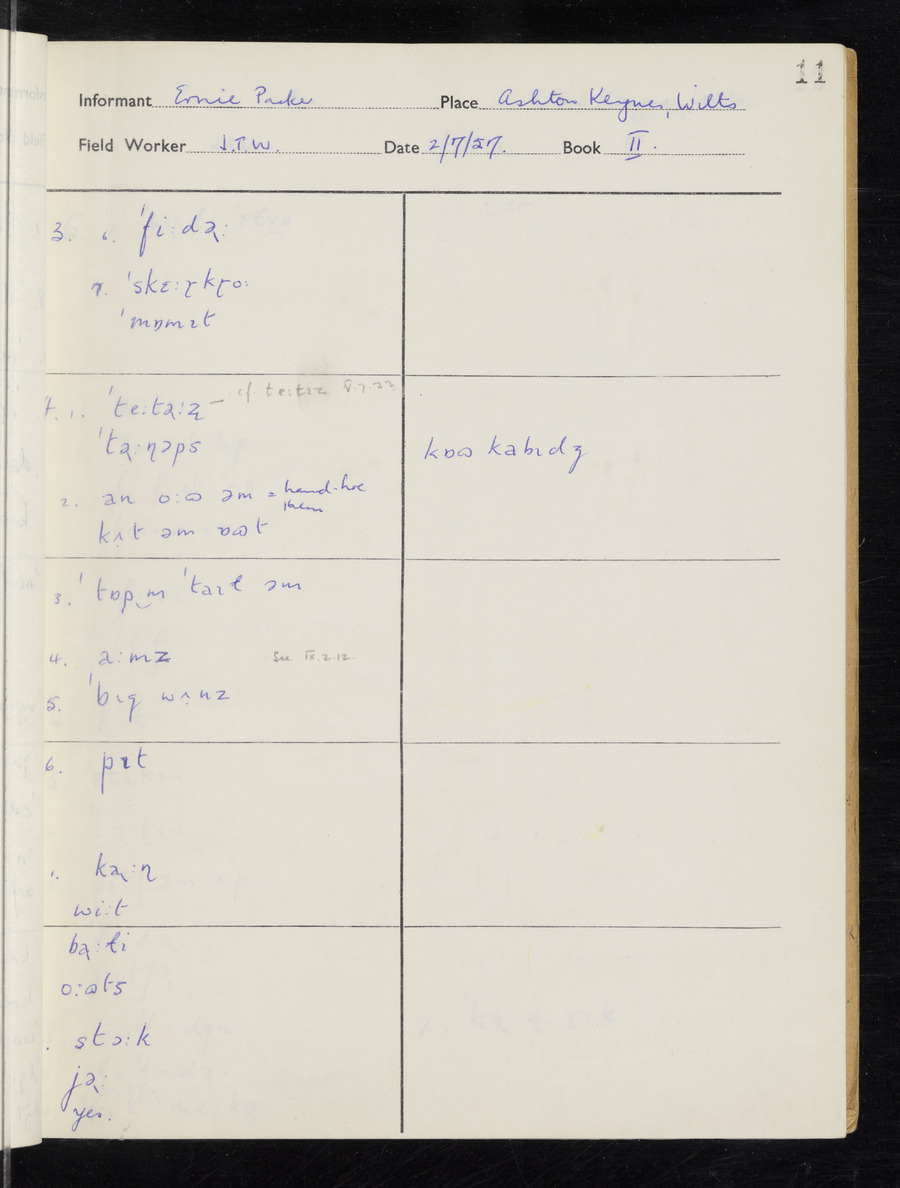 11
Informant Ernie Packer Place Ashton Keynes, Wilts
Field Worker J.T.W. Date 2/7/57. Book II.
3. 6. ˈfiːdəɽː
7. ˈskɛːɽkɽoː
ˈmɒmɪt
1. ˈteːtəɽːz — cf. teːtɪz V.7.
ˈtəɽːɳəps
kɒʊ kabɪdʒ
2. an oːʊ əm = hand-hoe
them
kʌt əm ɒʊt
3. ˈtɒp m ˈtaɪɫ əm
4. aːmz See IX.2.12.
5. ˈbɪg wʌnz
6. pɪt
kəɽːɳ
wiːt
bəɽːɫi
oːʊts
stɔːk
jəɽː
yes.